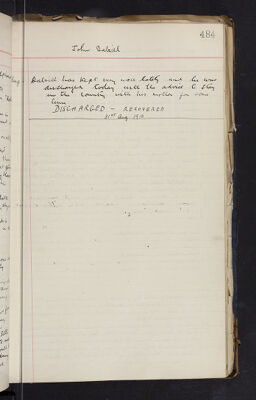 484
John Dalziel
Dalziel has kept very well lately and he was
discharged today with the advice to stay
in the country with his mother for some
time.
DISCHARGED – RECOVERED
31st Aug. 1910